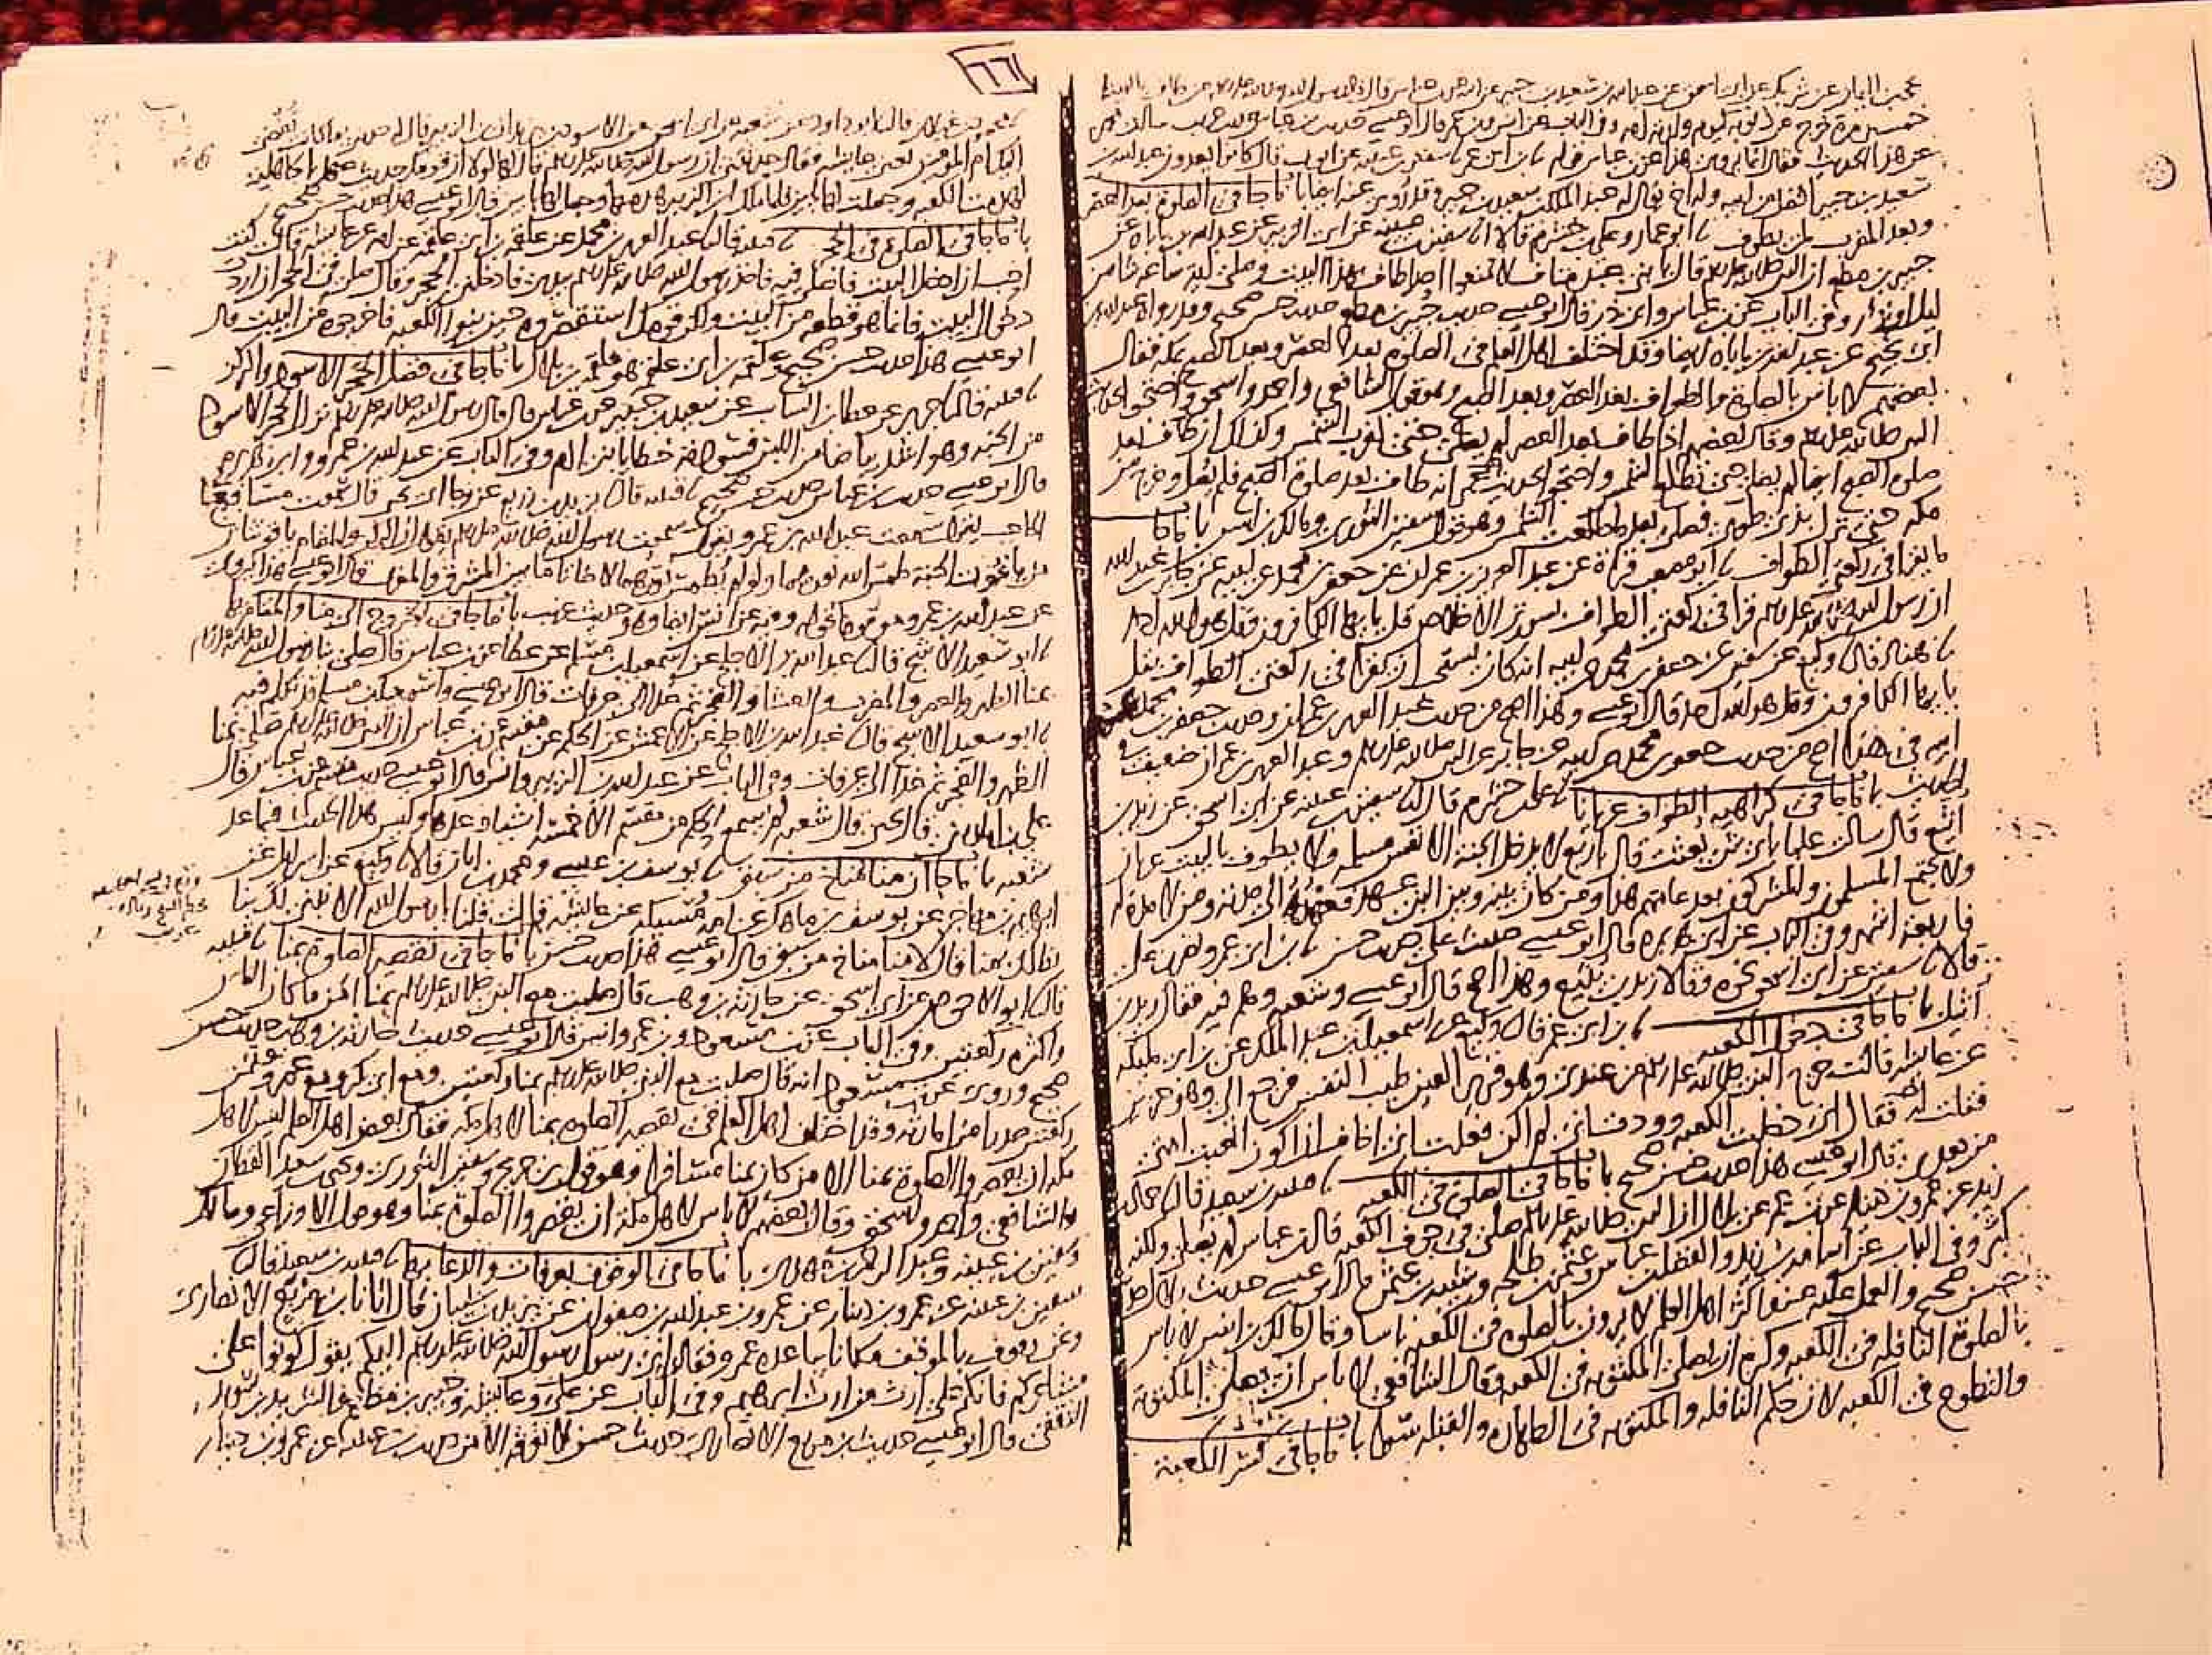 خمسين مرة خرج من ذنوبه كيوم ولدته امه وفي الباب عن انس وابن عمر قال ابو عيسى حديث ابن عباس حديث غريب سالت محمدا
عن هذا الحديث فقال انما يروى هذا عن ابن عباس قوله ابن ابي عمر سفين بن عيينه عن ايوب قال كانوا يعدون عبد الله بن
سعيد بن جبير افضل من ابيه وله اخ يقال له عبد الملك بن سعيد بن جبير وقد روى عنه ايضا باب ما جا في الصلوة بعد العصر
وبعد المغرب لمن يطوف ابو عمار وعلي بن خشرم قالا سفين بن عيينه عن ابي الزبير عن عبد الله بن باباه عن
جبير بن مطعم ان النبي صلى الله عليه وسلم قال يا بني عبد مناف لا تمنعوا احدا طاف بهذا البيت وصلى اية ساعة شا من
ليل او نهار وفي الباب عن ابن عباس وابي ذر قال ابو عيسى حديث جبير بن مطعم حديث حسن صحيح وقد رواه عبد الله بن
ابي نجيح عن عبد الله بن باباه ايضا وقد اختلف اهل العلم في الصلوة بعد العصر وبعد الصبح بمكه فقال
بعضهم لا باس بالصلوة والطواف بعد العصر وبعد الصبح وهو قول الشافعي واحمد واسحق واحتجوا بحديث
النبي صلى الله عليه وسلم وقال بعضهم اذا طاف بعد العصر لم يصل حتى تغرب الشمس وكذلك ان طاف بعد
صلوة الصبح ايضا لم يصل حتى تطلع الشمس واحتجوا بحديث عمر انه طاف بعد صلوة الصبح فلم يصل وخرج من
مكه حتى نزل بذي طوى فصلى بعد ما طلعت الشمس وهو قول سفين الثوري ومالك بن انس باب ما جا
ما يقرا في ركعتي الطواف ابو مصعب قراة عن عبد العزيز بن عمران عن جعفر بن محمد عن ابيه عن جابر بن عبد الله
ان رسول الله صلى الله عليه وسلم قرا في ركعتي الطواف بسورتي الاخلاص قل يايها الكافرون وقل هو الله احد
هناد قال وكيع عن سفين عن جعفر بن محمد عن ابيه انه كان يستحب ان يقرا في ركعتي الطواف بقل
يايها الكافرون وقل هو الله احد قال ابو عيسى وهذا اصح من حديث عبد العزيز بن عمران وحديث جعفر بن محمد عن
ابيه في هذا اصح من حديث جعفر بن محمد عن ابيه عن جابر عن النبي صلى الله عليه وسلم وعبد العزيز بن عمران ضعيف في
الحديث باب ما جا في كراهية الطواف عريانا علي بن خشرم قال سفين بن عيينه عن ابي اسحق عن زيد بن
اثيع قال سالت عليا باي شي بعثت قال باربع لا يدخل الجنة الا نفس مسلمه ولا يطوف بالبيت عريان
ولا يجتمع المسلمون والمشركون بعد عامهم هذا ومن كان بينه وبين النبي عهد فعهده الى مدته ومن لا مدة له
فاربعة اشهر وفي الباب عن ابي هريره قال ابو عيسى حديث علي حديث حسن ابن ابي عمر ونصر بن علي
قالا سفين عن ابي اسحق نحوه وقالا زيد بن يثيع وهذا اصح قال ابو عيسى وشعبه وهم فيه فقال زيد بن
اثيل باب ما جا في دخول الكعبه ابن ابي عمر قال وكيع عن اسمعيل بن عبد الملك عن ابن ابي مليكه
عن عايشه قالت خرج النبي صلى الله عليه وسلم من عندي وهو قرير العين طيب النفس فرجع الي وهو حزين
فقلت له فقال اني دخلت الكعبه ووددت اني لم اكن فعلت اني اخاف ان اكون اتعبت امتي
من بعدي قال ابو عيسى هذا حديث حسن صحيح باب ما جا في الصلوة في الكعبه قتيبه بن سعيد قال حماد بن
زيد عن عمرو بن دينار عن ابن عمر عن بلال ان النبي صلى الله عليه وسلم صلى في جوف الكعبه قال ابن عباس لم يصل ولكنه
كبر وفي الباب عن اسامه بن زيد والفضل بن عباس وعثمن بن طلحه وشيبه بن عثمن قال ابو عيسى حديث بلال حديث
حسن صحيح والعمل عليه عند اكثر اهل العلم لا يرون بالصلوة في الكعبه باسا وقال مالك بن انس لا باس
بالصلوة النافله في الكعبه وكره ان يصلى المكتوبه في الكعبه وقال الشافعي لا باس ان يصلى المكتوبه
والتطوع في الكعبه لان حكم النافله والمكتوبه في الطهاره والقبله سوا باب ما جا في كسر الكعبه
٦٦
محمود بن غيلان قال ابو داود عن شعبه عن ابي اسحق عن الاسود بن يزيد ان ابن الزبير قال له حدثني بما كانت تفضي
اليك ام المومنين يعني عايشه فقال حدثتني ان رسول الله صلى الله عليه وسلم قال لها لولا ان قومك حديث عهد بالجاهليه
لهدمت الكعبه وجعلت لها بابين فلما ملك ابن الزبير هدمها وجعل لها بابين قال ابو عيسى هذا حديث حسن صحيح
باب ما جا في الصلوة في الحجر قتيبه قال عبد العزيز بن محمد عن علقمه بن ابي علقمه عن امه عن عايشه قالت كنت
احب ان ادخل البيت فاصلي فيه فاخذ رسول الله صلى الله عليه وسلم بيدي فادخلني الحجر وقال صلي في الحجر ان اردت
دخول البيت فانما هو قطعه من البيت ولكن قومك استقصروه حين بنوا الكعبه فاخرجوه من البيت قال
ابو عيسى هذا حديث حسن صحيح وعلقمه بن ابي علقمه هو علقمه بن بلال باب ما جا في فضل الحجر الاسود والركن
قتيبه قال جرير عن عطا بن السايب عن سعيد بن جبير عن ابن عباس قال قال رسول الله صلى الله عليه وسلم نزل الحجر الاسود
من الجنه وهو اشد بياضا من اللبن فسودته خطايا بني ادم وفي الباب عن عبد الله بن عمرو وابي هريره
قال ابو عيسى حديث ابن عباس حديث حسن صحيح قتيبه قال يزيد بن زريع عن رجا ابي يحيى قال سمعت مسافعا
الحاجب يقول سمعت عبد الله بن عمرو يقول سمعت رسول الله صلى الله عليه وسلم يقول ان الركن والمقام ياقوتتان
من ياقوت الجنة طمس الله نورهما ولو لم يطمس نورهما لاضاتا ما بين المشرق والمغرب قال ابو عيسى هذا يروى
عن عبد الله بن عمرو موقوفا قوله وفيه عن انس ايضا وهو حديث غريب باب ما جا في الخروج الى منا والمقام بها
ابو سعيد الاشج قال عبد الله بن الاجلح عن اسمعيل بن مسلم عن عطا عن ابن عباس قال صلى بنا رسول الله صلى الله عليه وسلم
بمنا الظهر والعصر والمغرب والعشا والفجر ثم غدا الى عرفات قال ابو عيسى واسمعيل بن مسلم قد تكلم فيه
ابو سعيد الاشج قال عبد الله بن الاجلح عن الاعمش عن الحكم عن مقسم عن ابن عباس ان النبي صلى الله عليه وسلم صلى بمنا
الظهر والفجر ثم غدا الى عرفات وفي الباب عن عبد الله بن الزبير وانس قال ابو عيسى حديث مقسم عن ابن عباس قال
علي بن المديني قال يحيى قال شعبه لم يسمع الحكم من مقسم الا خمسة اشيا وعدها وليس هذا الحديث فيما عد
شعبه باب ما جا ان منا مناخ من سبق يوسف بن عيسى ومحمد بن ابان قالا وكيع عن اسرايل عن
ابرهيم بن مهاجر عن يوسف بن ماهك عن امه مسيكه عن عايشه قالت قلنا يا رسول الله الا نبني لك بنا
يظلك بمنا قال لا منا مناخ من سبق قال ابو عيسى هذا حديث حسن باب ما جا في تقصير الصلوة بمنا قتيبه
قال ابو الاحوص عن ابي اسحق عن حارثه بن وهب قال صليت مع النبي صلى الله عليه وسلم بمنا امن ما كان الناس
واكثره ركعتين وفي الباب عن ابن مسعود وابن عمر وانس قال ابو عيسى حديث حارثه بن وهب حديث حسن
صحيح وروي عن ابن مسعود انه قال صليت مع النبي صلى الله عليه وسلم بمنا ركعتين ومع ابي بكر ومع عمر وعثمن
ركعتين صدرا من امارته وقد اختلف اهل العلم في تقصير الصلوة بمنا لاهل مكه فقال بعض اهل العلم ليس لاهل
مكه ان يقصروا الصلوة بمنا الا من كان بمنا مسافرا وهو قول ابن جريج وسفين الثوري ويحيى بن سعيد القطان
والشافعي واحمد واسحق وقال بعضهم لا باس لاهل مكه ان يقصروا الصلوة بمنا وهو قول الاوزاعي ومالك
وسفين بن عيينه وعبد الرحمن بن مهدي باب ما جا في الوقوف بعرفات والدعا بها قتيبه بن سعيد قال
سفين بن عيينه عن عمرو بن دينار عن عمرو بن عبد الله بن صفوان عن يزيد بن شيبان قال اتانا ابن مربع الانصاري
ونحن وقوف بالموقف مكانا يباعده عمرو فقال اني رسول رسول الله صلى الله عليه وسلم اليكم يقول كونوا على
مشاعركم فانكم على ارث من ارث ابرهيم وفي الباب عن علي وعايشه وجبير بن مطعم والشريد بن سويد
الثقفي قال ابو عيسى حديث ابن مربع الانصاري حديث حسن لا نعرفه الا من حديث ابن عيينه عن عمرو بن دينار